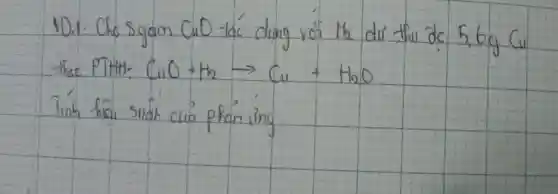 10.1. Cho 8 gam CuO tác dụng với H2 dư thu đc 5,6g Cu
theo PTHH: CuO + H2 → Cu + H2O
Tính hiệu suất của phản ứng